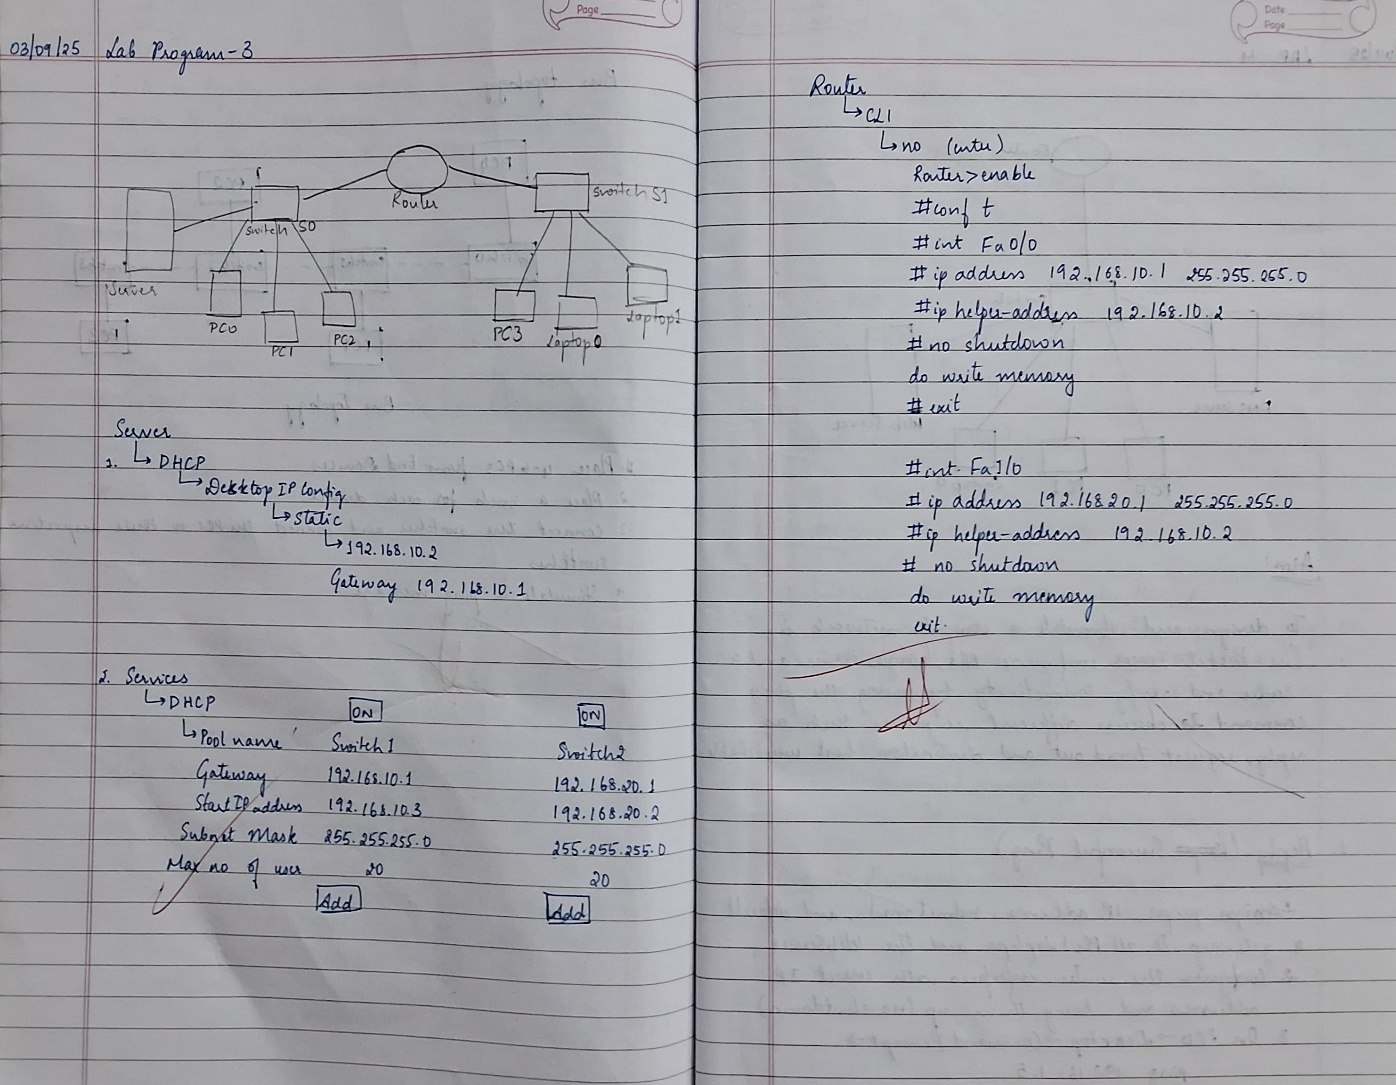 Page
03/09/25 Lab Program-3
Router
Switch S1
Switch S0
Server
PC0
PC1
PC2
PC3
Laptop0
Laptop1
Server
1. ↳ DHCP
↳ Desktop IP Config
↳ Static
↳ 192.168.10.2
Gateway 192.168.10.1
2. Services
↳ DHCP ON ON
↳ Pool name Switch1 Switch2
Gateway 192.168.10.1 192.168.20.1
Start IP address 192.168.10.3 192.168.20.2
Subnet Mask 255.255.255.0 255.255.255.0
Max no of user 20 20
Add Add
Date
Page
Router
↳ CLI
↳ no (enter)
Router>enable
#conf t
#int Fa0/0
# ip address 192.168.10.1 255.255.255.0
#ip helper-address 192.168.10.2
# no shutdown
do write memory
# exit
#int Fa1/0
# ip address 192.168.20.1 255.255.255.0
#ip helper-address 192.168.10.2
# no shutdown
do write memory
exit.